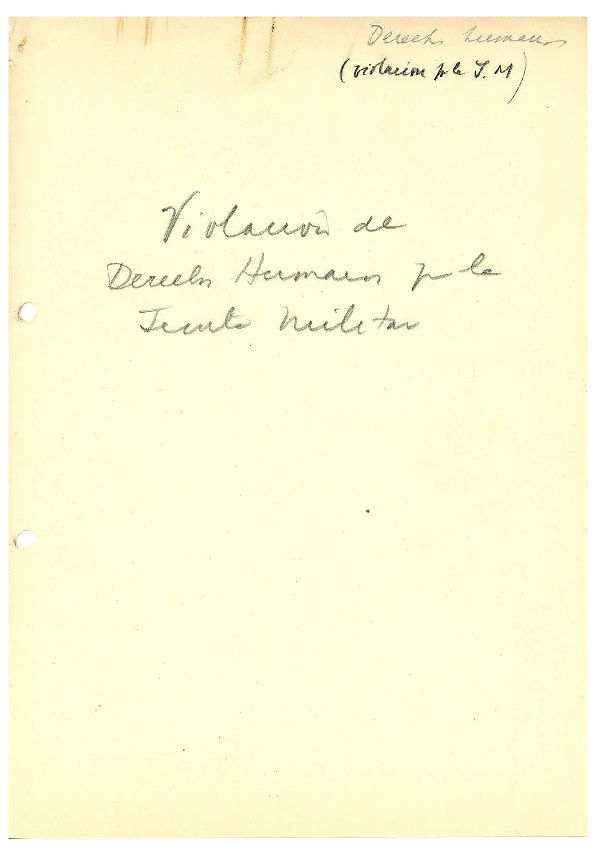 Derechos humanos
(violación por la J. M)
Violación de
Derechos Humanos por la
Junta Militar